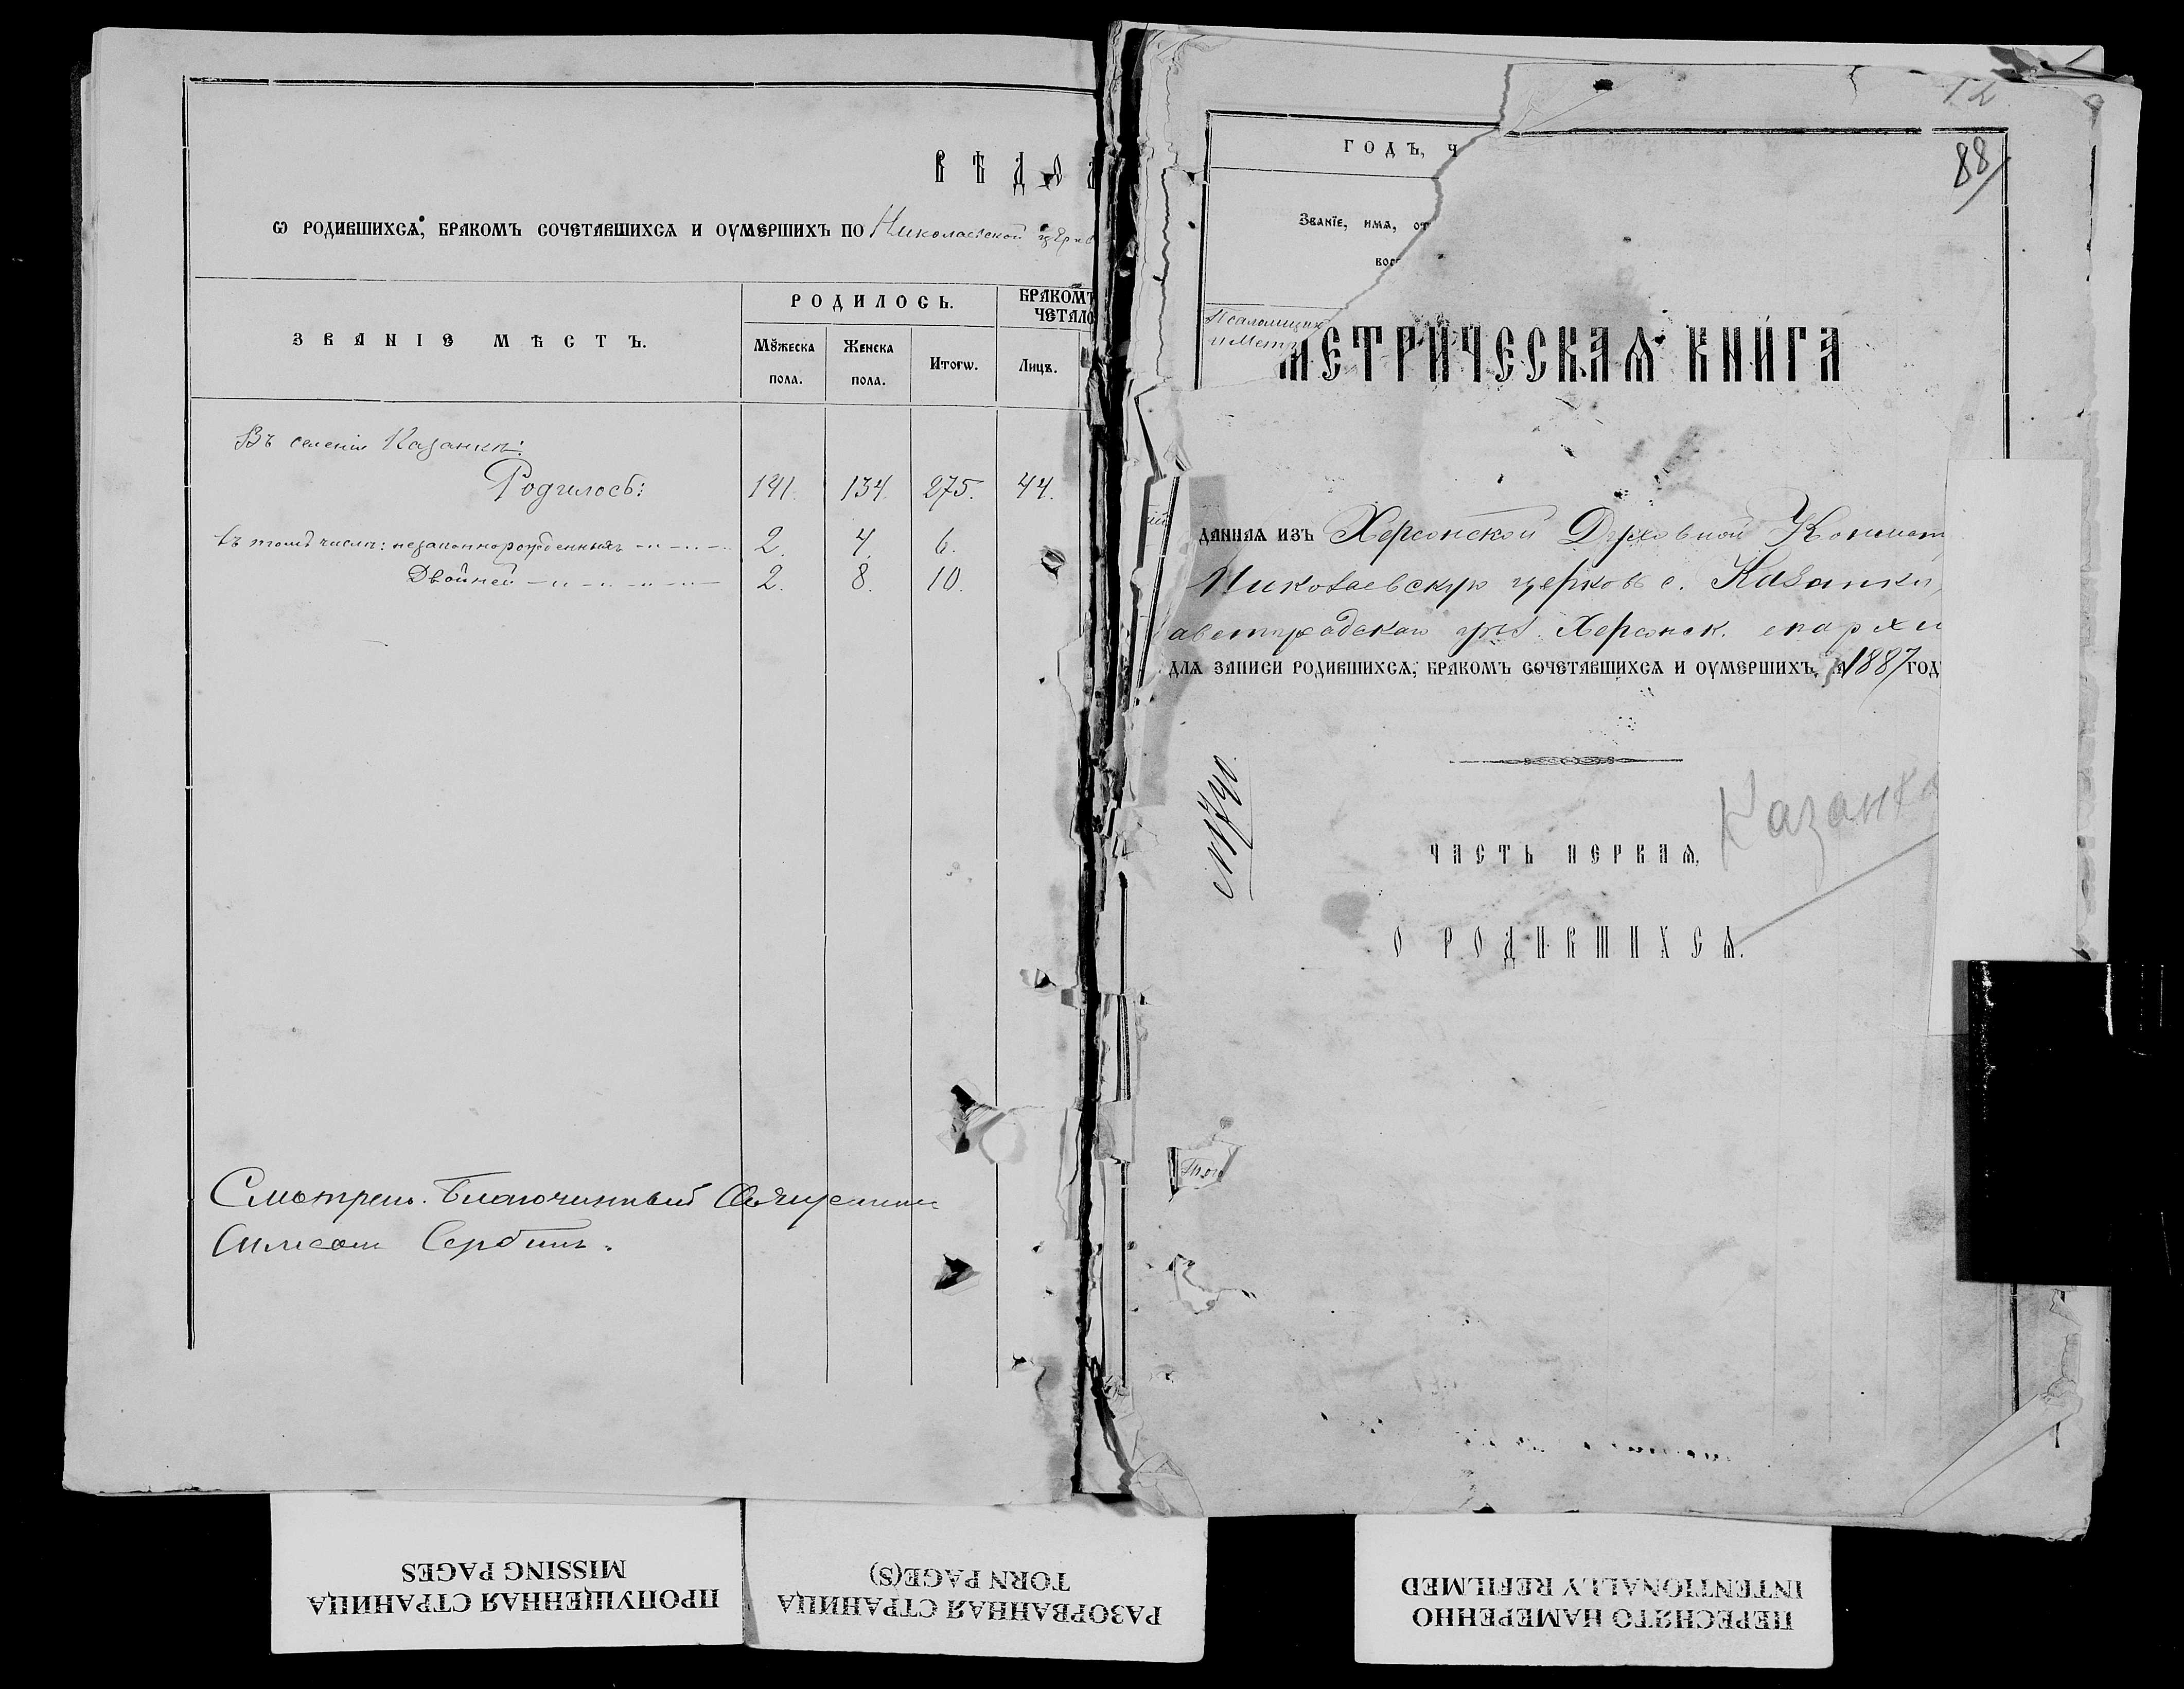 ВѢДО
Ѡ РОДИВШИХСѦ, БРАКОМЪ СОЧЕТАВШИХСѦ И ОУМЕРШИХЪ ПО Николаевской церкв
ЗВАНІЕ МѢСТЪ.
РОДИЛОСЬ.
БРАКОМЪ
ЧЕТАЛО
МꙊЖЕСКА
ПОЛА.
ЖЕНСКА
ПОЛА.
ИТОГѠ.
ЛИЦЪ.
Въ селеніи Казанкѣ:
Родилось: 141. 134. 275. 44.
въ томъ числѣ: незаконнорожденныхъ 2. 4. 6.
Двойней 2. 8. 10.
Смотрѣлъ. Благочинный Священникъ
Сербинъ.
12
88
ГОДЪ, Ч
ЗВАНЇЕ, ИМѦ, ОТ
ВОС
Псаломщик
МЕТРИЧЕСКАѦ КНИГА
ДАННАѦ ИЗЪ Херсонской Духовной Консист
Николаевскую церковь с. Казанки,
аветградскаго уѣз. Херсонск. епархи
ДЛѦ ЗАПИСИ РОДИВШИХСѦ, БРАКОМЪ СОЧЕТАВШИХСѦ И ОУМЕРШИХЪ, НА 1887 ГОД
№ 1740.
Казанка
ЧАСТЬ ПЕРВАѦ,
О РОДИВШИХСѦ.
ПРОПУЩЕННАЯ СТРАНИЦА
MISSING PAGES
РАЗОРВАННАЯ СТРАНИЦА
TORN PAGE(S)
ПЕРЕСНЯТО НАМЕРЕННО
INTENTIONALLY REFILMED